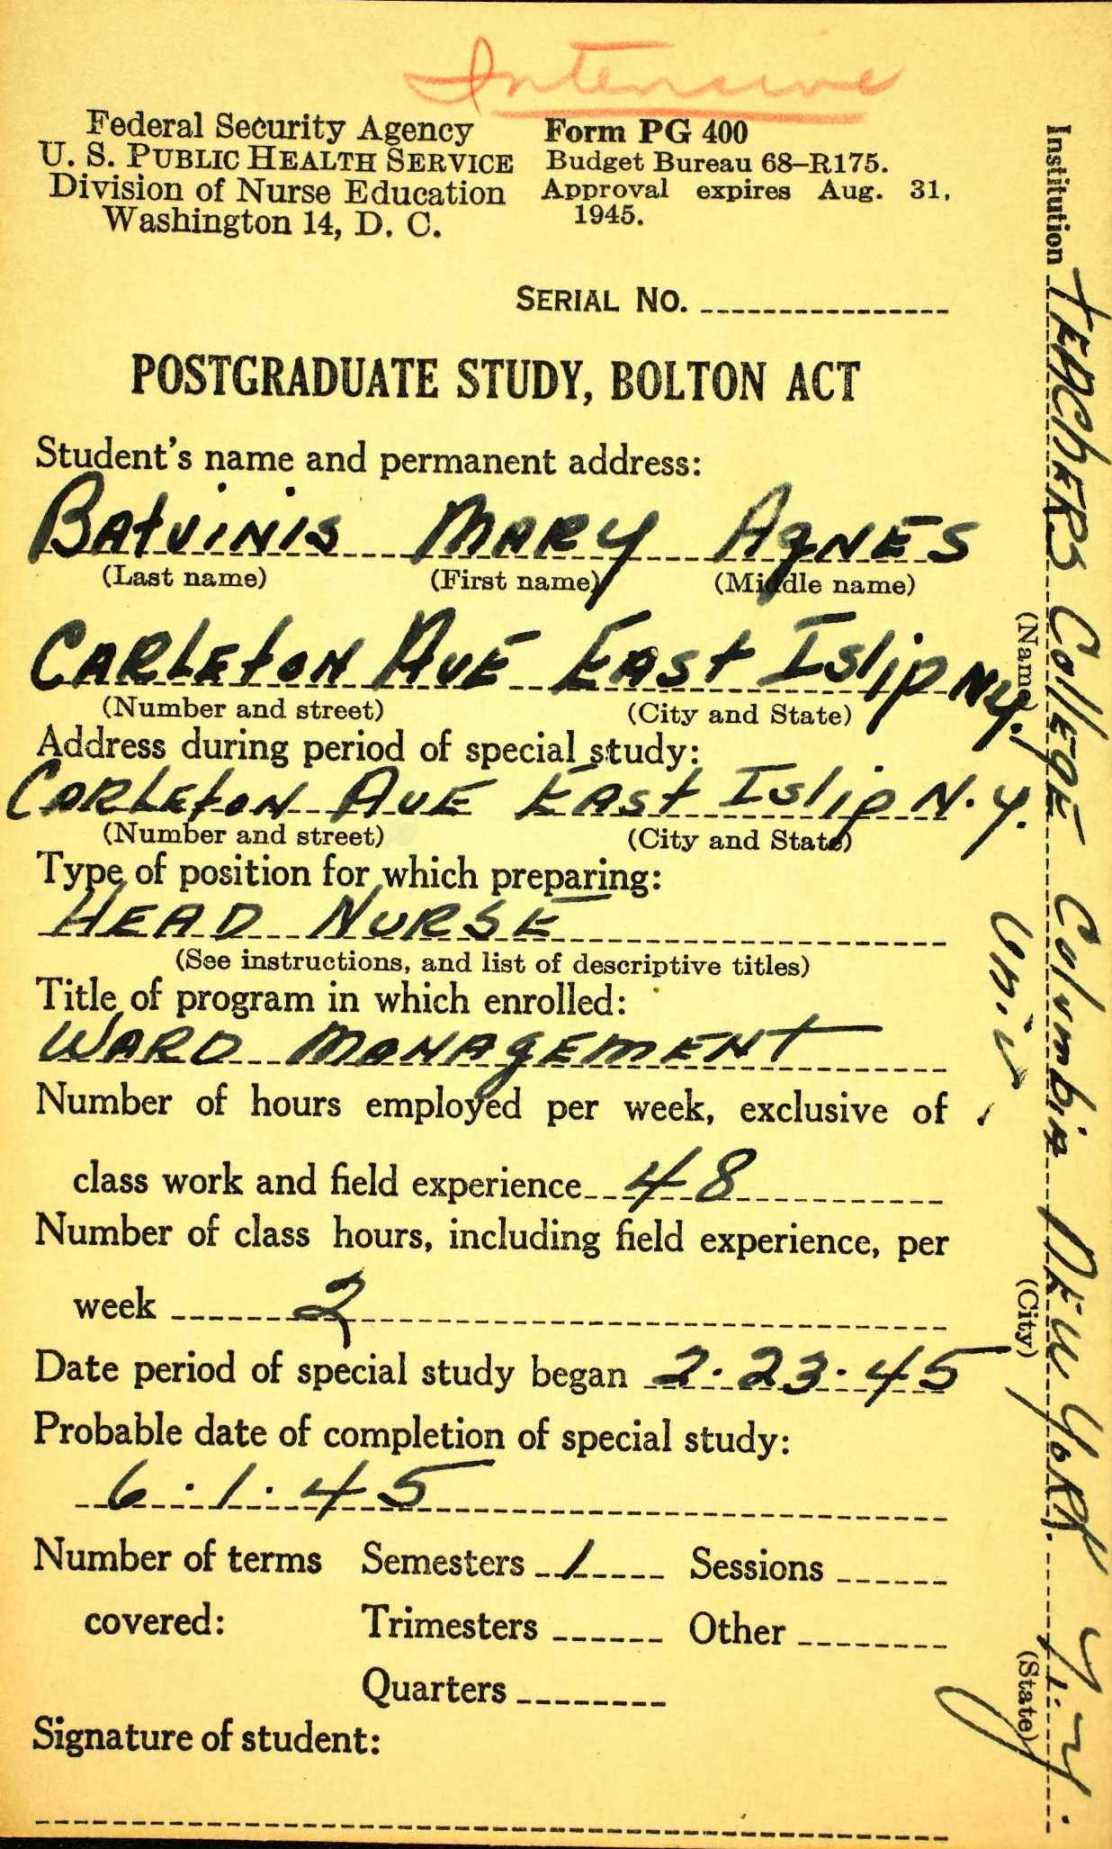 Intensive
Federal Security Agency
U. S. PUBLIC HEALTH SERVICE
Division of Nurse Education
Washington 14, D. C.
Form PG 400
Budget Bureau 68–R175.
Approval expires Aug. 31,
1945.
SERIAL NO.
POSTGRADUATE STUDY, BOLTON ACT
Student's name and permanent address:
Batvinis Mary Agnes
(Last name) (First name) (Middle name)
Carleton Ave East Islip N.Y.
(Number and street) (City and State)
Address during period of special study:
Carleton Ave East Islip N.Y.
(Number and street) (City and State)
Type of position for which preparing:
Head Nurse
(See instructions, and list of descriptive titles)
Title of program in which enrolled:
Ward Management
Number of hours employed per week, exclusive of
class work and field experience 48
Number of class hours, including field experience, per
week 2
Date period of special study began 2·23·45
Probable date of completion of special study:
6·1·45
Number of terms Semesters 1 Sessions
covered: Trimesters Other
Quarters
Signature of student:
Institution Teachers College Columbia New York. N.Y.
Univ.
(Name) (City) (State)